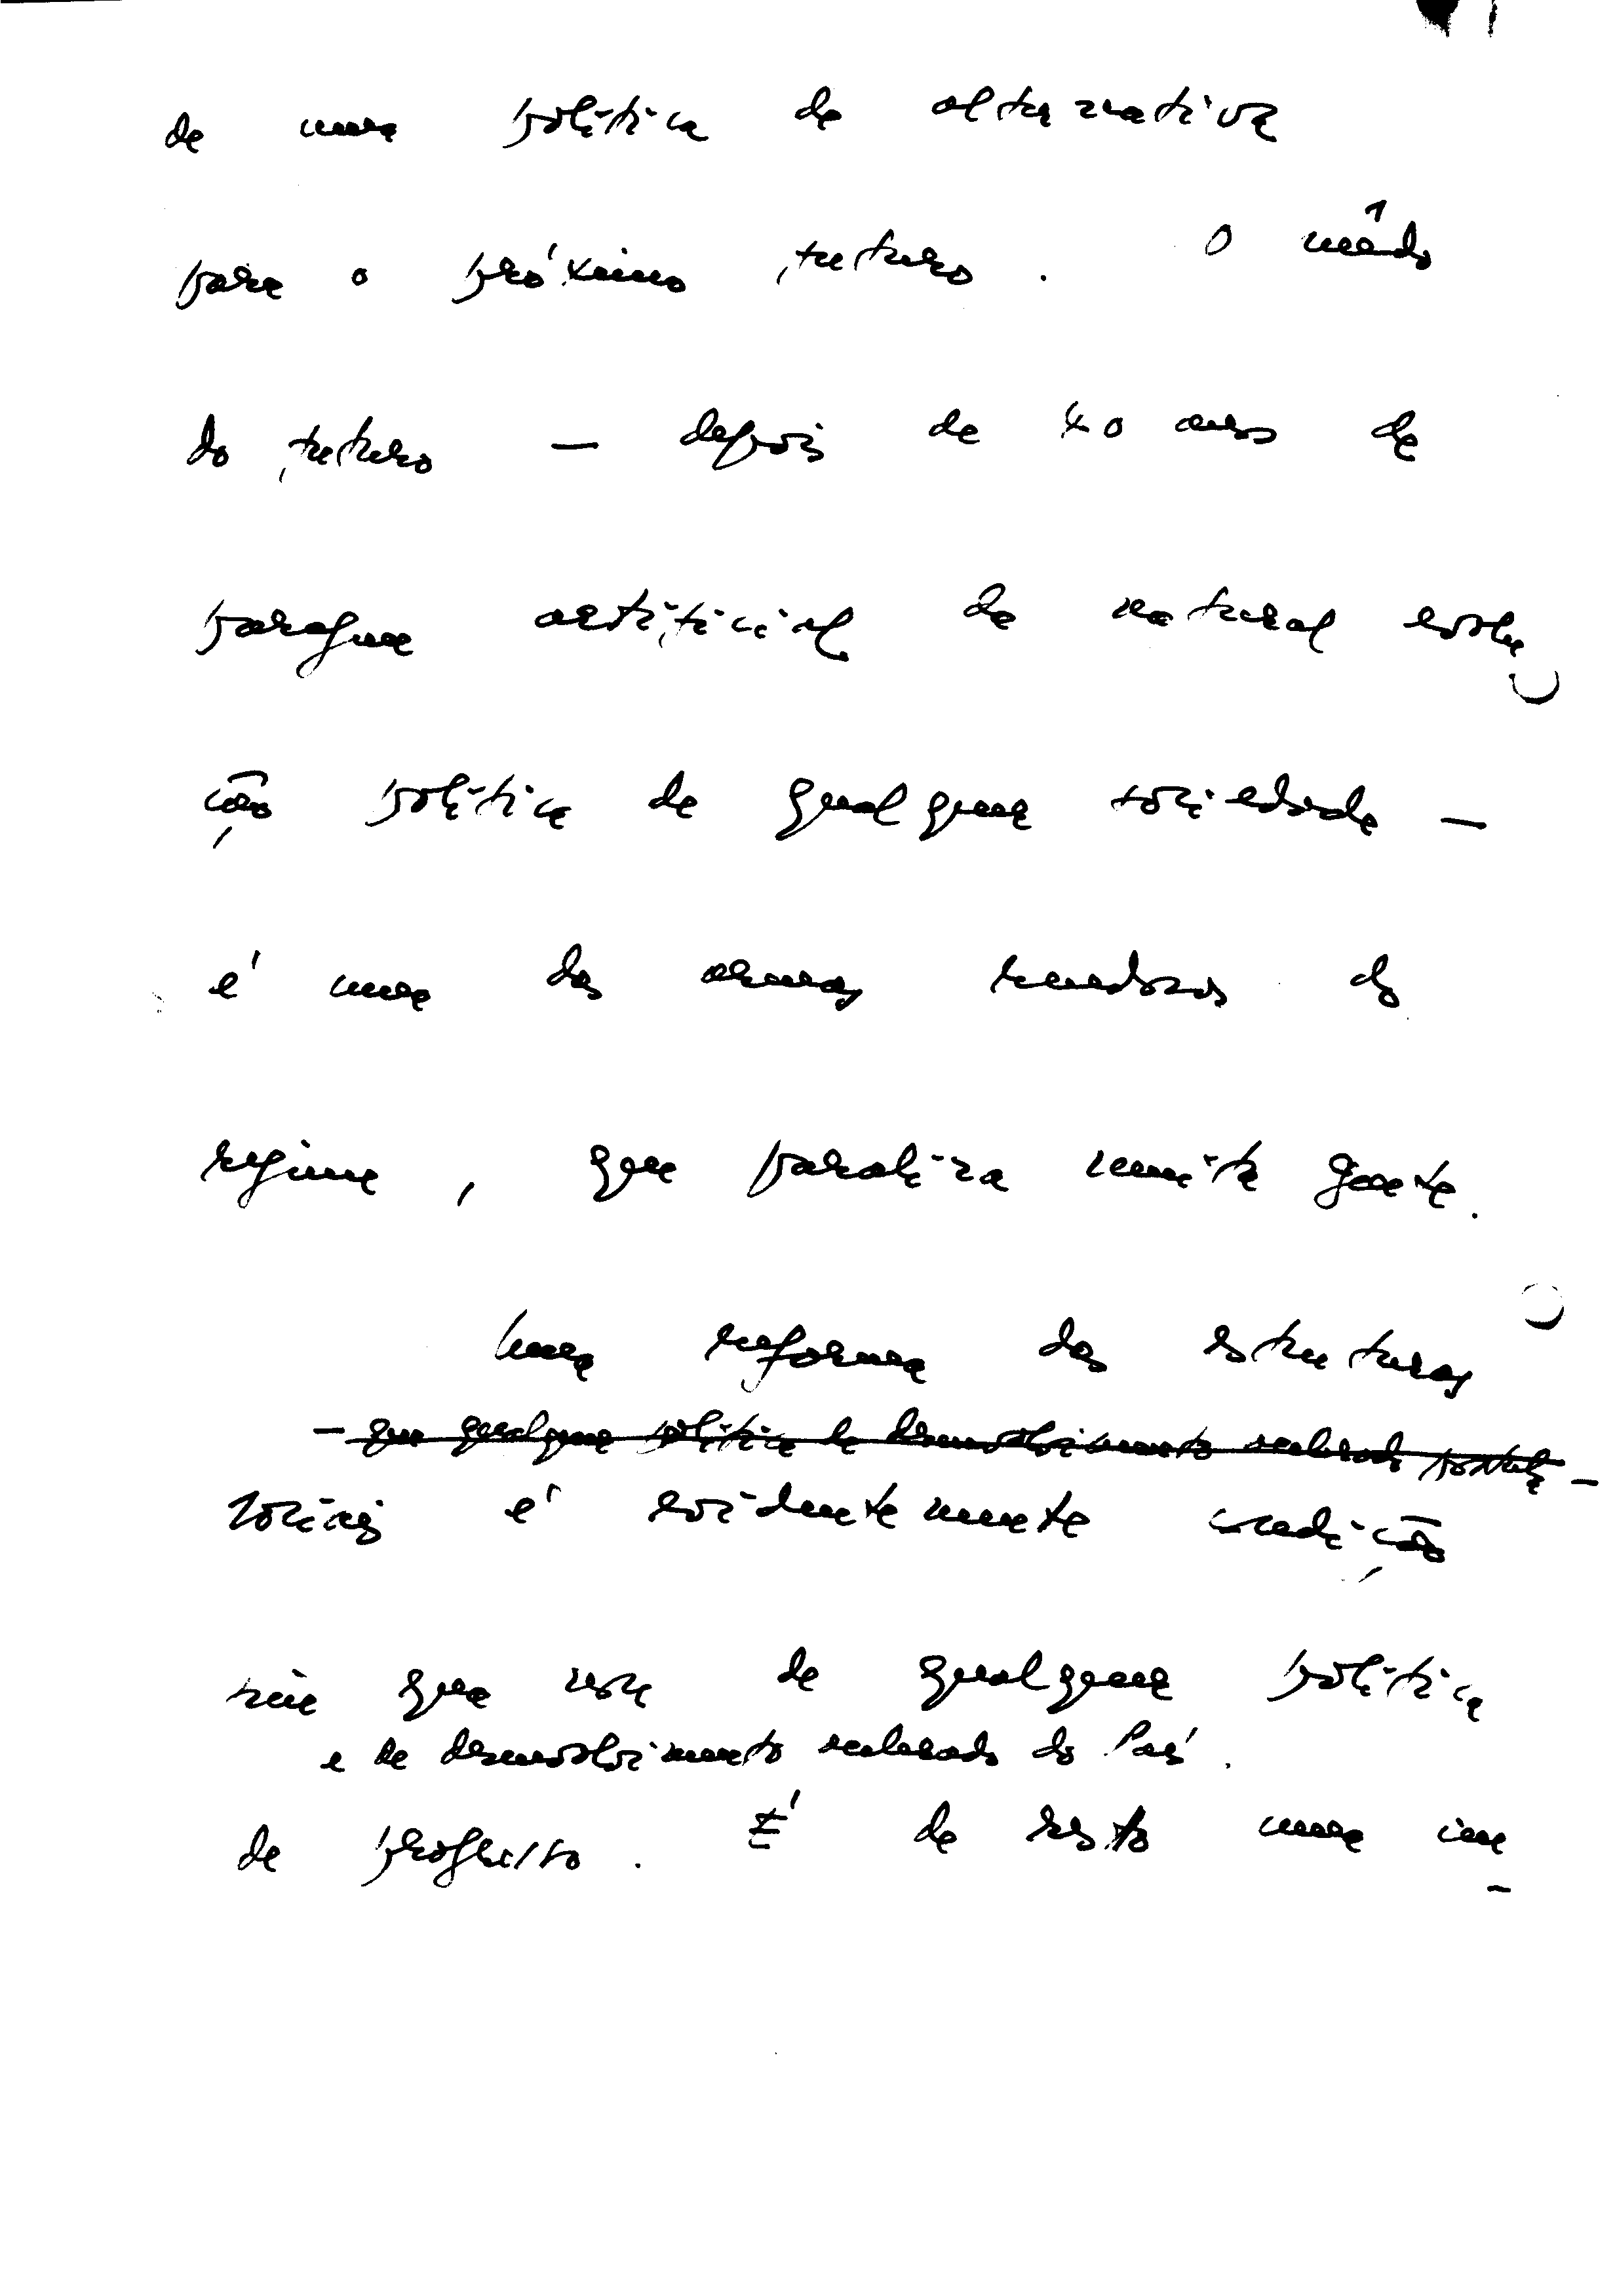 de uma política de alternativa
para o próximo futuro. O mêdo
do futuro — depois de 40 anos de
paragem artificial da natural evolu
ção política de qualquer sociedade —
é uma das armas do
regime, que paraliza muita gente.
Uma reforma das estruturas
— que qualquer política de desenvolvimento acelerado —
sociais é evidentemente condição
sine qua non de qualquer política
e de desenvolvimento acelerado do País.
de progresso. É de resto uma im-